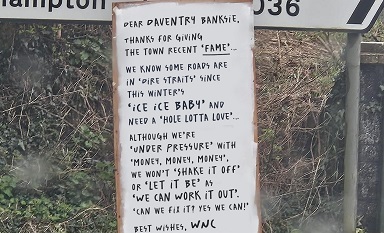 hampton
036
DEAR DAVENTRY BANKSIE,
THANKS FOR GIVING
THE TOWN RECENT 'FAME'...
WE KNOW SOME ROADS ARE
IN 'DIRE STRAITS' SINCE
THIS WINTER'S
'ICE ICE BABY' AND
NEED A 'HOLE LOTTA LOVE'...
ALTHOUGH WE'RE
'UNDER PRESSURE' WITH
'MONEY, MONEY, MONEY',
WE WON'T 'SHAKE IT OFF'
OR 'LET IT BE' AS
'WE CAN WORK IT OUT'.
'CAN WE FIX IT? YES WE CAN!'
BEST WISHES, WNC